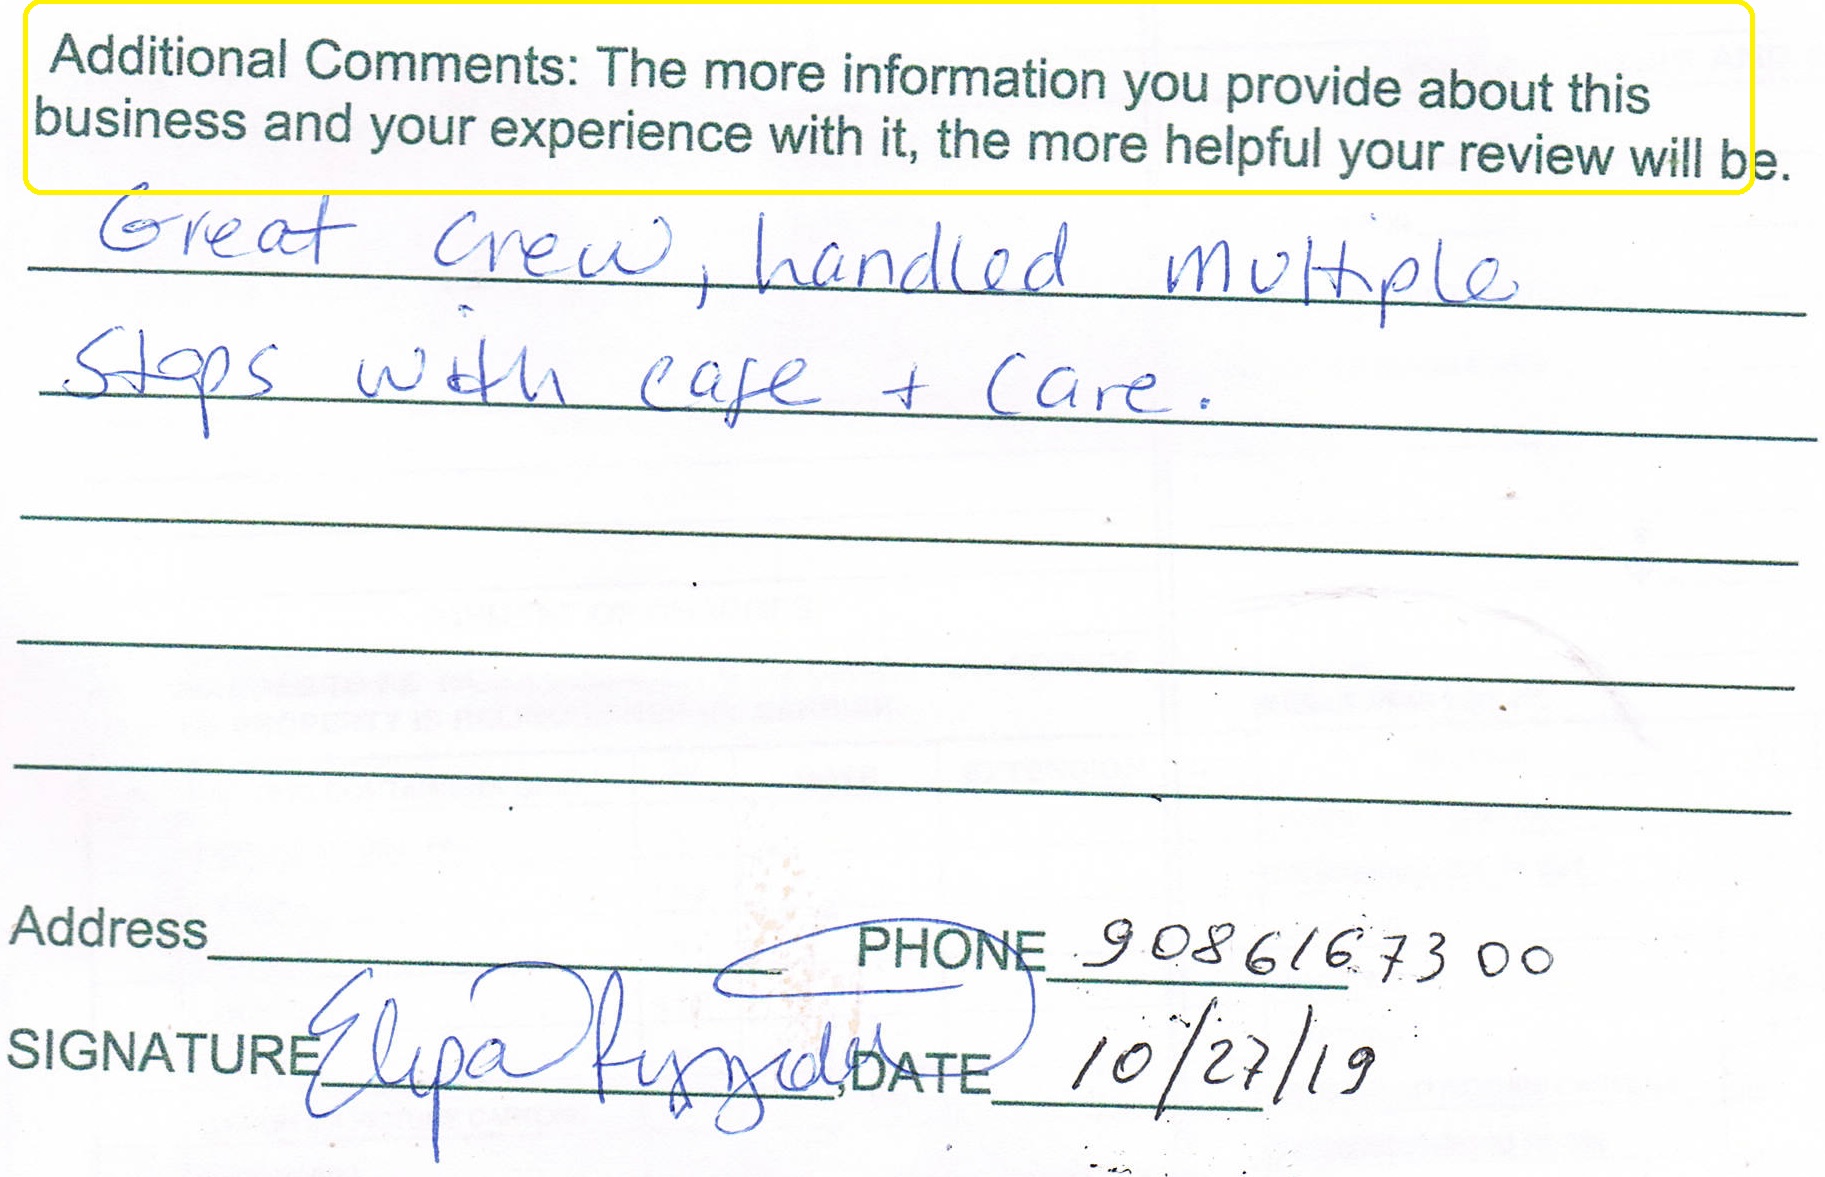 Additional Comments: The more information you provide about this
business and your experience with it, the more helpful your review will be.
Great crew, handled multiple
stops with ease + care.
Address PHONE 9086167300
SIGNATURE , DATE 10/27/19